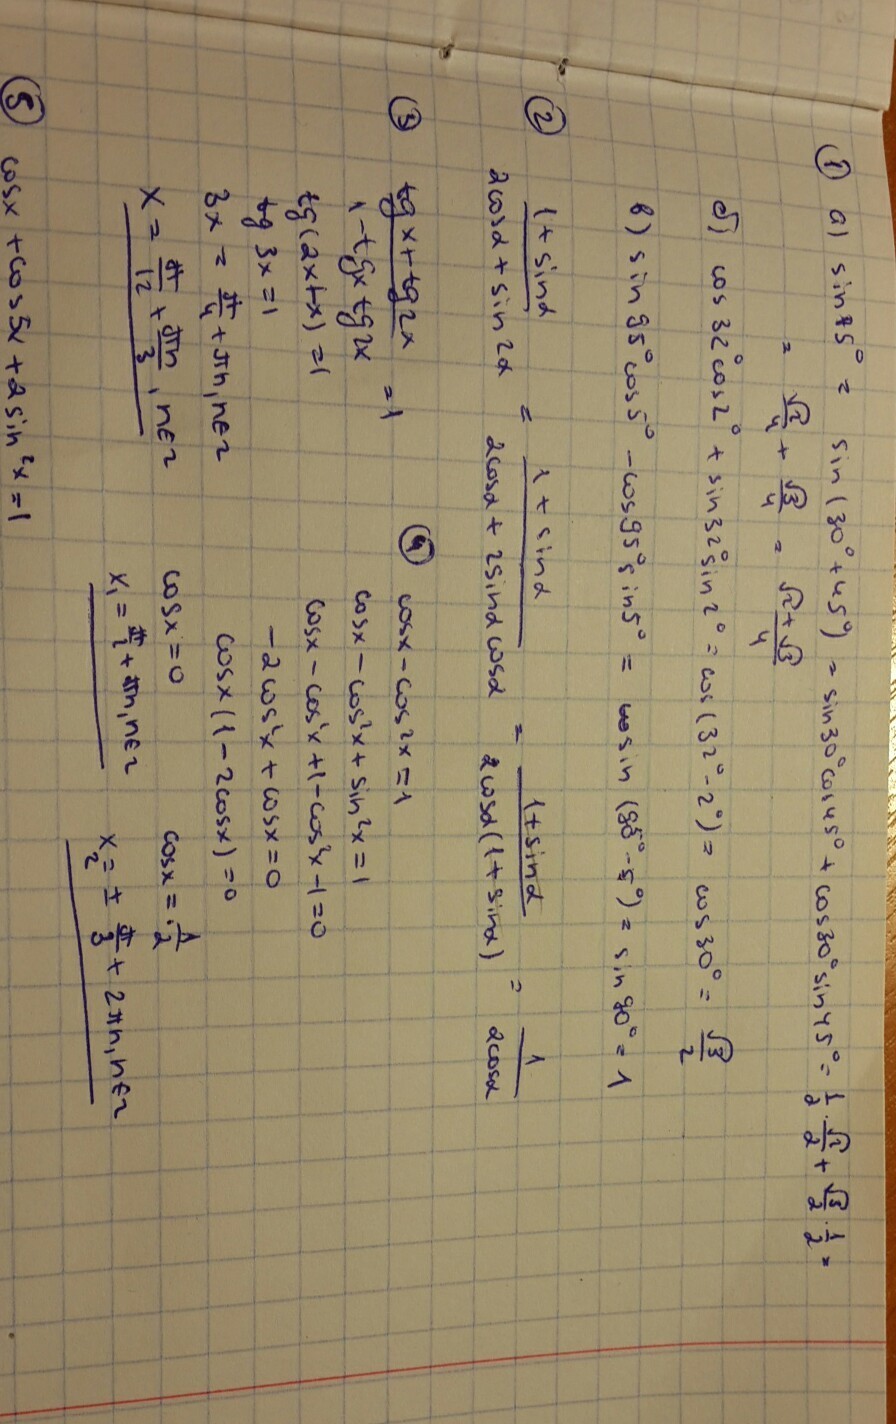 ① а) sin75° = sin(30°+45°) = sin30°cos45° + cos30°sin45° = 1/2 · √2/2 + √3/2 · 1/2 =
= √2/4 + √3/4 = √2+√3/4
б) cos32°cos2° + sin32°sin2° = cos(32°-2°) = cos30° = √3/2
в) sin95°cos5° - cos95°sin5° = sin(95°-5°) = sin90° = 1
② 1+sinα / 2cosα + sin2α = 1+sinα / 2cosα + 2sinα cosα = 1+sinα / 2cosα(1+sinα) = 1 / 2cosα
③ tgx + tg2x / 1 - tgx tg2x = 1
tg(2x+x) = 1
tg 3x = 1
3x = π/4 + πn, n∈z
x = π/12 + πn/3, n∈z
④ cosx - cos2x = 1
cosx - cos²x + sin²x = 1
cosx - cos²x + 1 - cos²x - 1 = 0
-2cos²x + cosx = 0
cosx(1 - 2cosx) = 0
cosx = 0 cosx = 1/2
x₁ = π/2 + πn, n∈z x₂ = ± π/3 + 2πn, n∈z
⑤ cosx + cos5x + 2sin²x = 1